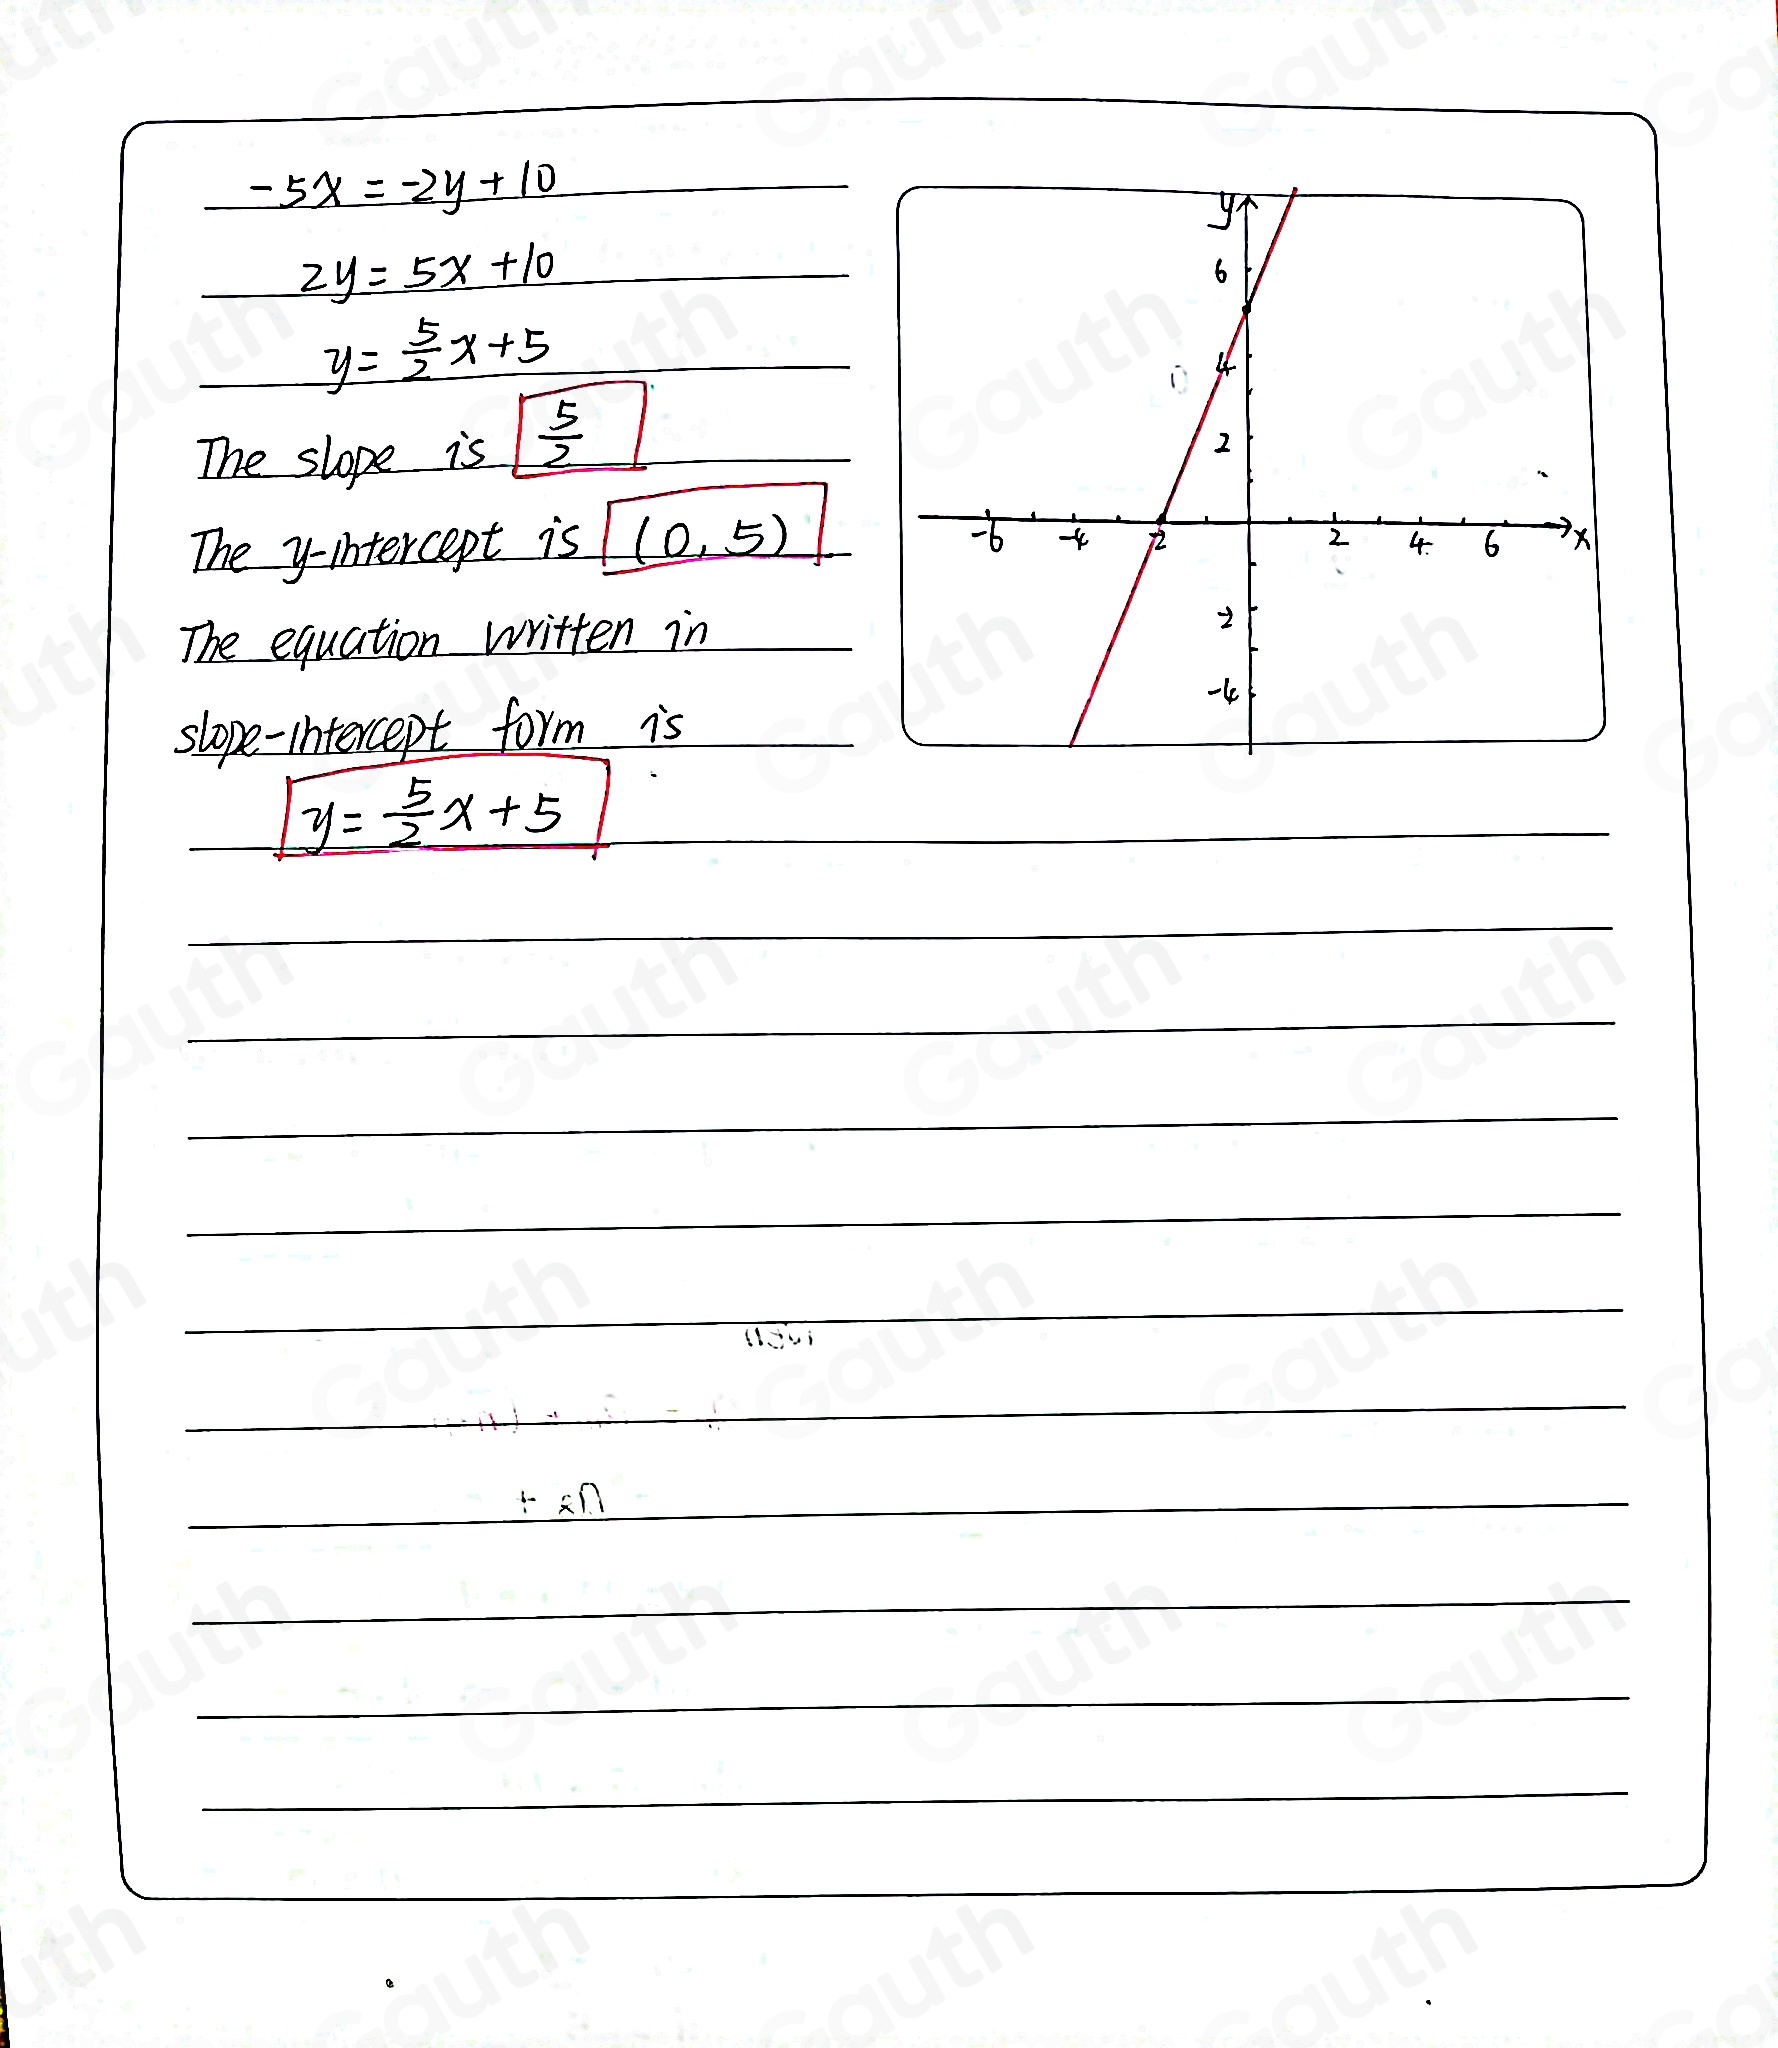 -5x = -2y + 10
2y = 5x + 10
y = 5/2 x + 5
The slope is 5/2
The y-intercept is (0, 5)
The equation written in
slope-intercept form is
y = 5/2 x + 5
y
6
4
2
-6 -4 -2 2 4 6 x
-2
-4
Gauth